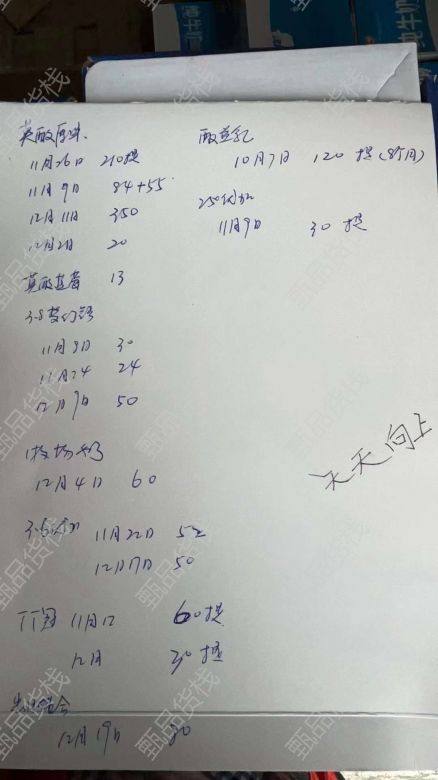 纯牛奶
英酸原味
11月26日 210提
11月9日 84+55
12月11日 350
12月2日 20
莫酸蓝莓 13
3.8梦幻盖
11月8日 30
11月24 24
12月9日 50
牧场
12月4日 60
3.6
11月22日 52
12月17日 50
11月12 60提
12月 30提
12月19日 30
酸豆乳
10月7日 120提(8个月)
250
11月9日 30提
天天向上
甄品货栈